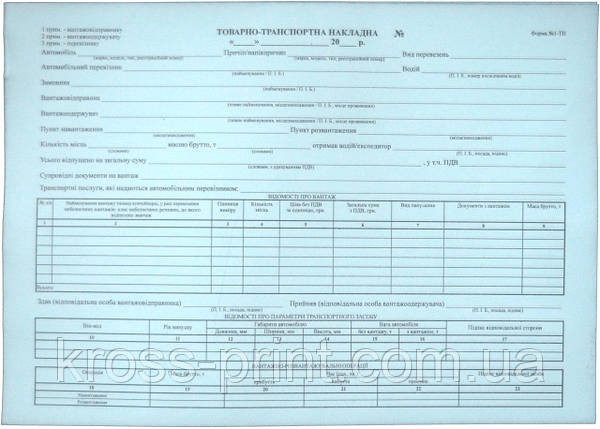 1 прим. - вантажовідправнику
2 прим. - вантажоодержувачу
3 прим. - перевізнику
ТОВАРНО-ТРАНСПОРТНА НАКЛАДНА №
Форма №1-ТН
«____» ______________ 20____ р.
Автомобіль Причіп/напівпричіп Вид перевезень
(марка, модель, тип, реєстраційний номер) (марка, модель, тип, реєстраційний номер)
Автомобільний перевізник Водій
(найменування / П. І. Б.) (П. І. Б., номер посвідчення водія)
Замовник
(найменування / П. І. Б.)
Вантажовідправник
(повне найменування, місцезнаходження / П. І. Б., місце проживання)
Вантажоодержувач
(повне найменування, місцезнаходження / П. І. Б., місце проживання)
Пункт навантаження Пункт розвантаження
(місцезнаходження) (місцезнаходження)
Кількість місць , масою брутто, т , отримав водій/експедитор
(словами) (словами) (П. І. Б., посада, підпис)
Усього відпущено на загальну суму , у т.ч. ПДВ
(словами, з урахуванням ПДВ)
Супровідні документи на вантаж
Транспортні послуги, які надаються автомобільним перевізником:
ВІДОМОСТІ ПРО ВАНТАЖ
№ з/п Найменування вантажу (номер контейнера), у разі перевезення небезпечних вантажів: клас небезпечних речовин, до якого віднесено вантаж Одиниця виміру Кількість місць Ціна без ПДВ за одиницю, грн. Загальна сума з ПДВ, грн. Вид пакування Документи з вантажем Маса брутто, т
1 2 3 4 5 6 7 8 9
Всього:
Здав (відповідальна особа вантажовідправника) Прийняв (відповідальна особа вантажоодержувача)
(П. І. Б., посада, підпис) (П. І. Б., посада, підпис)
ВІДОМОСТІ ПРО ПАРАМЕТРИ ТРАНСПОРТНОГО ЗАСОБУ
Він-код Рік випуску Габарити автомобілю Вага автомобіля Підпис відповідальної сторони
Довжина, мм Ширина, мм Висота, мм без вантажу, т з вантажем, т
10 11 12 13 14 15 16 17
kross-print.com.ua
ВАНТАЖНО-РОЗВАНТАЖУВАЛЬНІ ОПЕРАЦІЇ
Операція Маса брутто, т Час (год., хв.) Підпис відповідальної особи
прибуття вибуття простою
18 19 20 21 22 23
Навантаження
Розвантаження